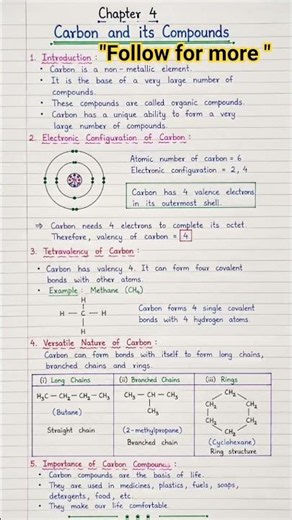 Chapter 4
Carbon and its Compounds
"Follow for more "
1. Introduction :
• Carbon is a non-metallic element.
• It is the base of a very large number of
compounds.
• These compounds are called organic compounds.
• Carbon has a unique ability to form a very
large number of compounds.
2. Electronic Configuration of Carbon :
Atomic number of carbon = 6
Electronic configuration = 2, 4
Carbon has 4 valence electrons
in its outermost shell.
⇒ Carbon needs 4 electrons to complete its octet.
Therefore, valency of carbon = 4
3. Tetravalency of Carbon :
• Carbon has valency 4. It can form four covalent
bonds with other atoms.
• Example : Methane (CH₄)
H
H — C — H
H
Carbon forms 4 single covalent
bonds with 4 hydrogen atoms.
4. Versatile Nature of Carbon :
Carbon can form bonds with itself to form long chains,
branched chains and rings.
(i) Long Chains
H₃C — CH₂ — CH₂ — CH₃
(Butane)
Straight chain
(ii) Branched Chains
CH₃ — CH — CH₃
CH₃
(2-methylpropane)
Branched chain
(iii) Rings
CH₂
CH₂ CH₂
CH₂ CH₂
CH₂
(Cyclohexane)
Ring structure
5. Importance of Carbon Compounds :
• Carbon compounds are the basis of life.
• They are used in medicines, plastics, fuels, soaps,
detergents, food, etc.
• They make our life comfortable.